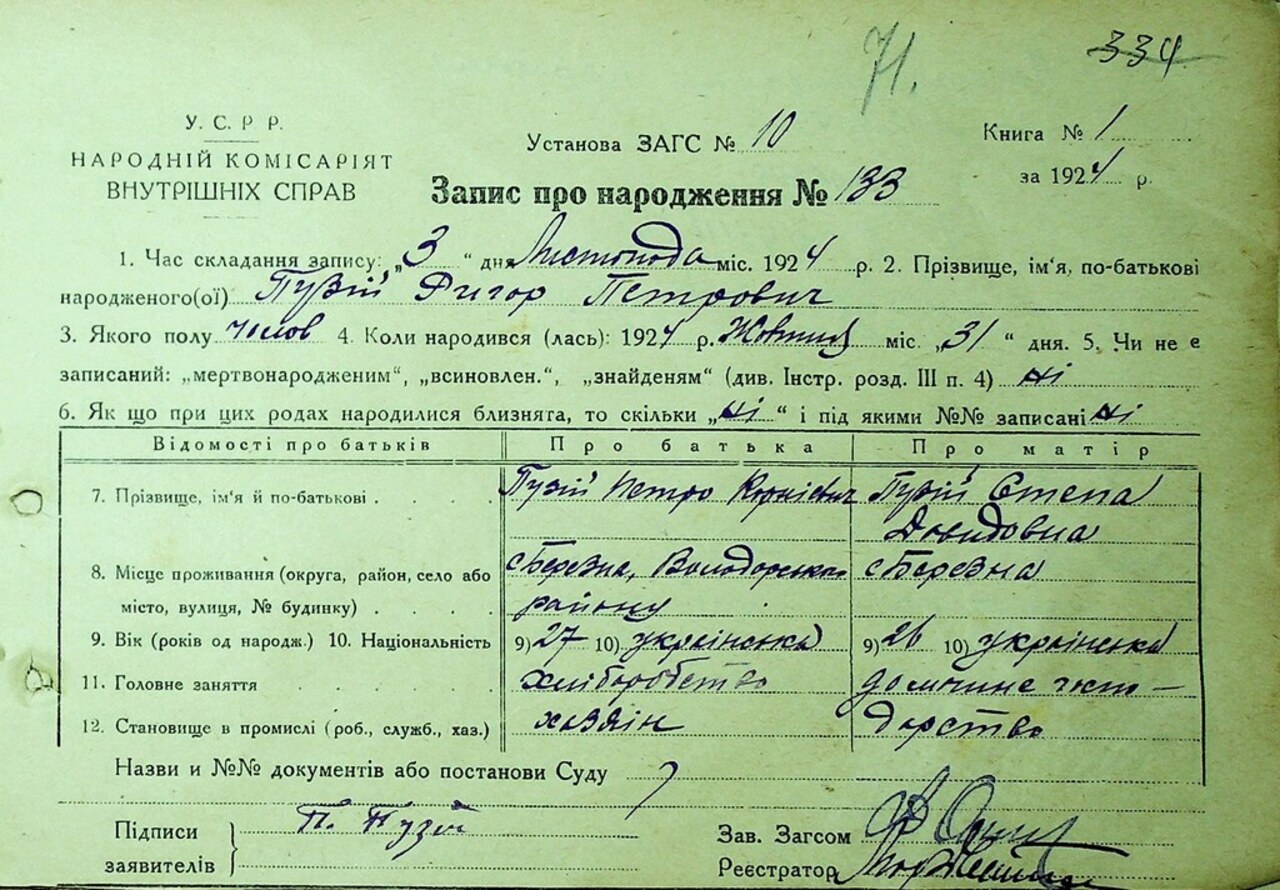 71.
334
У. С. Р. Р.
НАРОДНІЙ КОМІСАРІЯТ
ВНУТРІШНІХ СПРАВ
Установа ЗАГС № 10
Книга № 1
за 1924 р.
Запис про народження № 133
1. Час складання запису: „3“ дня Листопода міс. 1924 р. 2. Прізвище, ім'я, по-батькові
народженого(ої) Пузій Григор Петрович
3. Якого полу чолов 4. Коли народився (лась): 1924 р. Жовтня міс. „31“ дня. 5. Чи не є
записаний: „мертвонародженим“, „всиновлен.“, „знайденям“ (див. Інстр. розд. III п. 4) ні
6. Як що при цих родах народилися близнята, то скільки „ні“ і під якими №№ записані ні
Відомості про батьків Про батька Про матір
7. Прізвище, ім'я й по-батькові . . . . Пузій Петро Корнієвич Пузій Степа
Довидовна
8. Місце проживання (округа, район, село або с Березна, Володарськ с Березна
місто, вулиця, № будинку) . . . . району
9. Вік (років од народж.) 10. Національність 9) 27 10) українська 9) 26 10) українська
11. Головне заняття . . . . . хліборобство домашнє госпо—
12. Становище в промислі (роб., служб., хаз.) хазяїн дарство
Назви и №№ документів або постанови Суду
Підписи П. Пузій Зав. Загсом
заявителів Реєстратор